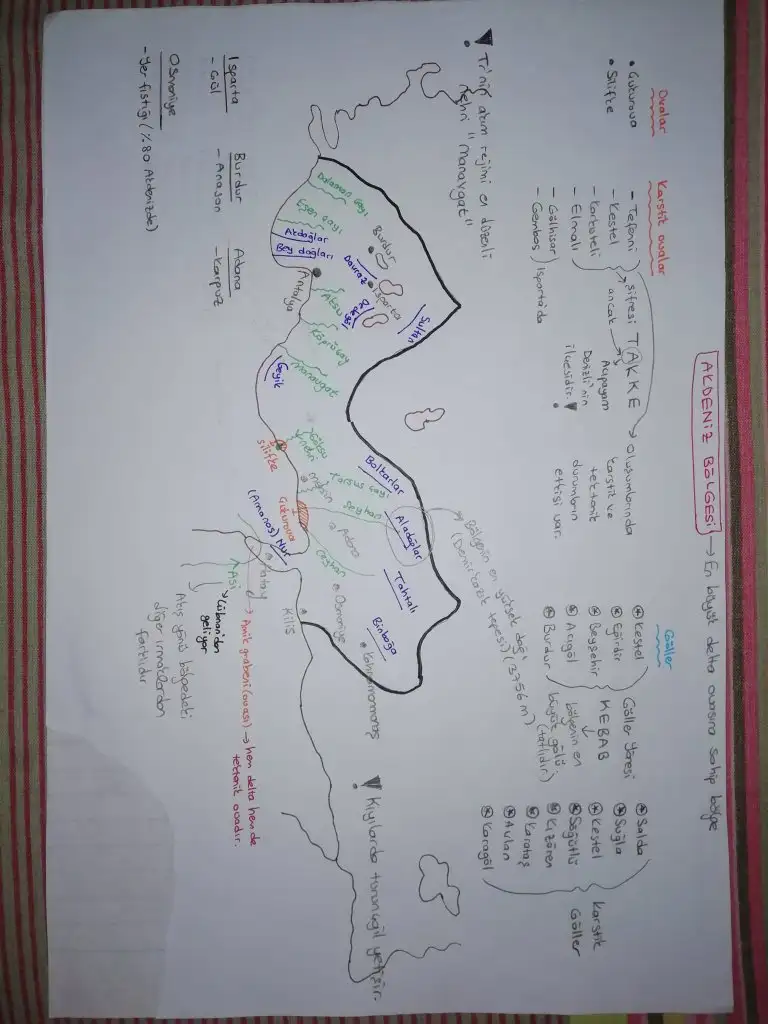 AKDENİZ BÖLGESİ → En büyük delta ovasına sahip bölge
Ovalar
• Çukurova
• Silifke
Karstik ovalar
- Tefenni
- Kestel
- Korkuteli
- Elmalı
- Gölhisar
- Gembos
Isparta'da
şifresi TAKKE → oluşumlarında
karstik ve
tektonik
durumların
etkisi var.
ancak → Acıpayam
Denizli'nin
ilçesidir.
Göller
Kestel
Eğirdir
Beyşehir
Acıgöl
Burdur
Göller Yöresi
KEBAB
bölgenin en
büyük gölü
(tatlıdır)
Salda
Suğla
Kestel
Söğütlü
Kızören
Karataş
Avlan
Karagöl
Karstik
Göller
Tr'nin akım rejimi en düzenli
nehri "Manavgat"
Bölgenin en yüksek dağı
(Demirkazık tepesi) (3756 m)
Kıyılarda turunçgil yetişir.
Sultan
Burdur
Isparta
Davraz
Dalaman çayı
Eşen çayı
Akdağlar
Bey dağları
Antalya
Aksu
Köprüçay
Manavgat
Geyik
Bolkarlar
Aladağlar
Tahtalı
Binboğa
Göksu
nehri
Silifke
Mersin
Tarsus çayı
Seyhan
Adana
Çukurova
Ceyhan
Osmaniye
Kahramanmaraş
(Amanos) Nur
Hatay
Kilis
Asi
→ Lübnan'dan
geliyor
Akış yönü bölgedeki
diğer ırmaklardan
farklıdır
Amik grabeni (ovası) → hem delta hem de
tektonik ovadır.
Isparta
- Gül
Burdur
- Anason
Adana
- Karpuz
Osmaniye
- Yer fıstığı (%80 Akdenizde)